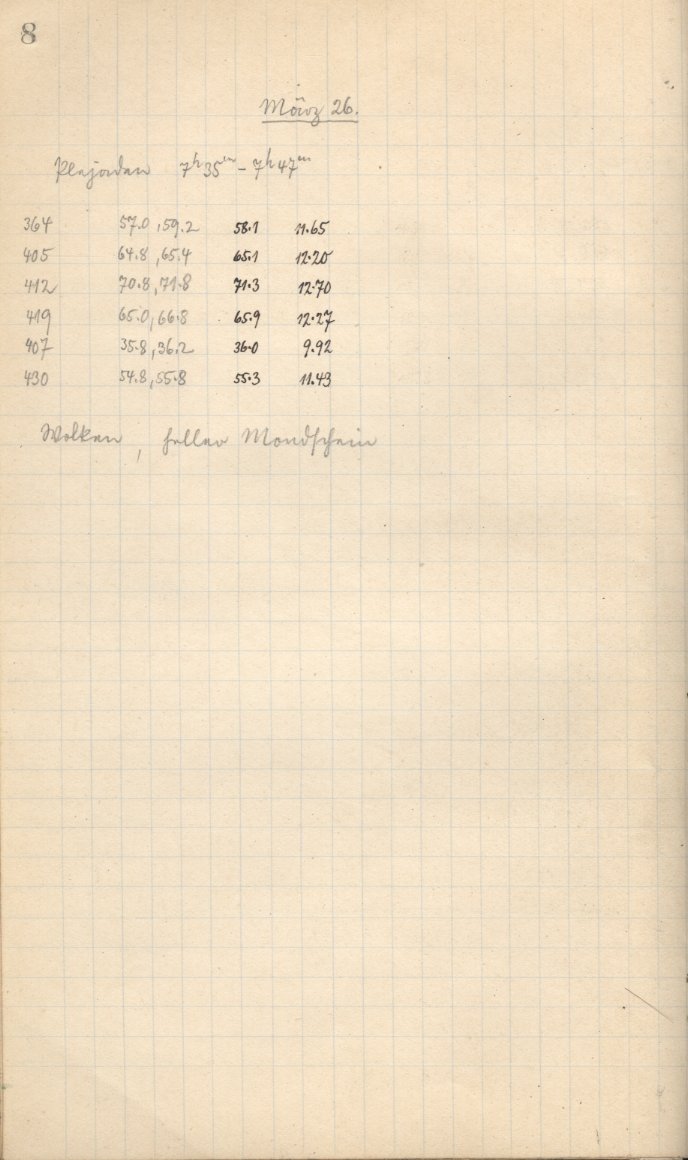 8
März 26.
Plejaden 7h35m – 7h47m
364 57.0, 59.2 58.1 11.65
405 64.8, 65.4 65.1 12.20
412 70.8, 71.8 71.3 12.70
419 65.0, 66.8 65.9 12.27
407 35.8, 36.2 36.0 9.92
430 54.8, 55.8 55.3 11.43
Wolken, heller Mondschein